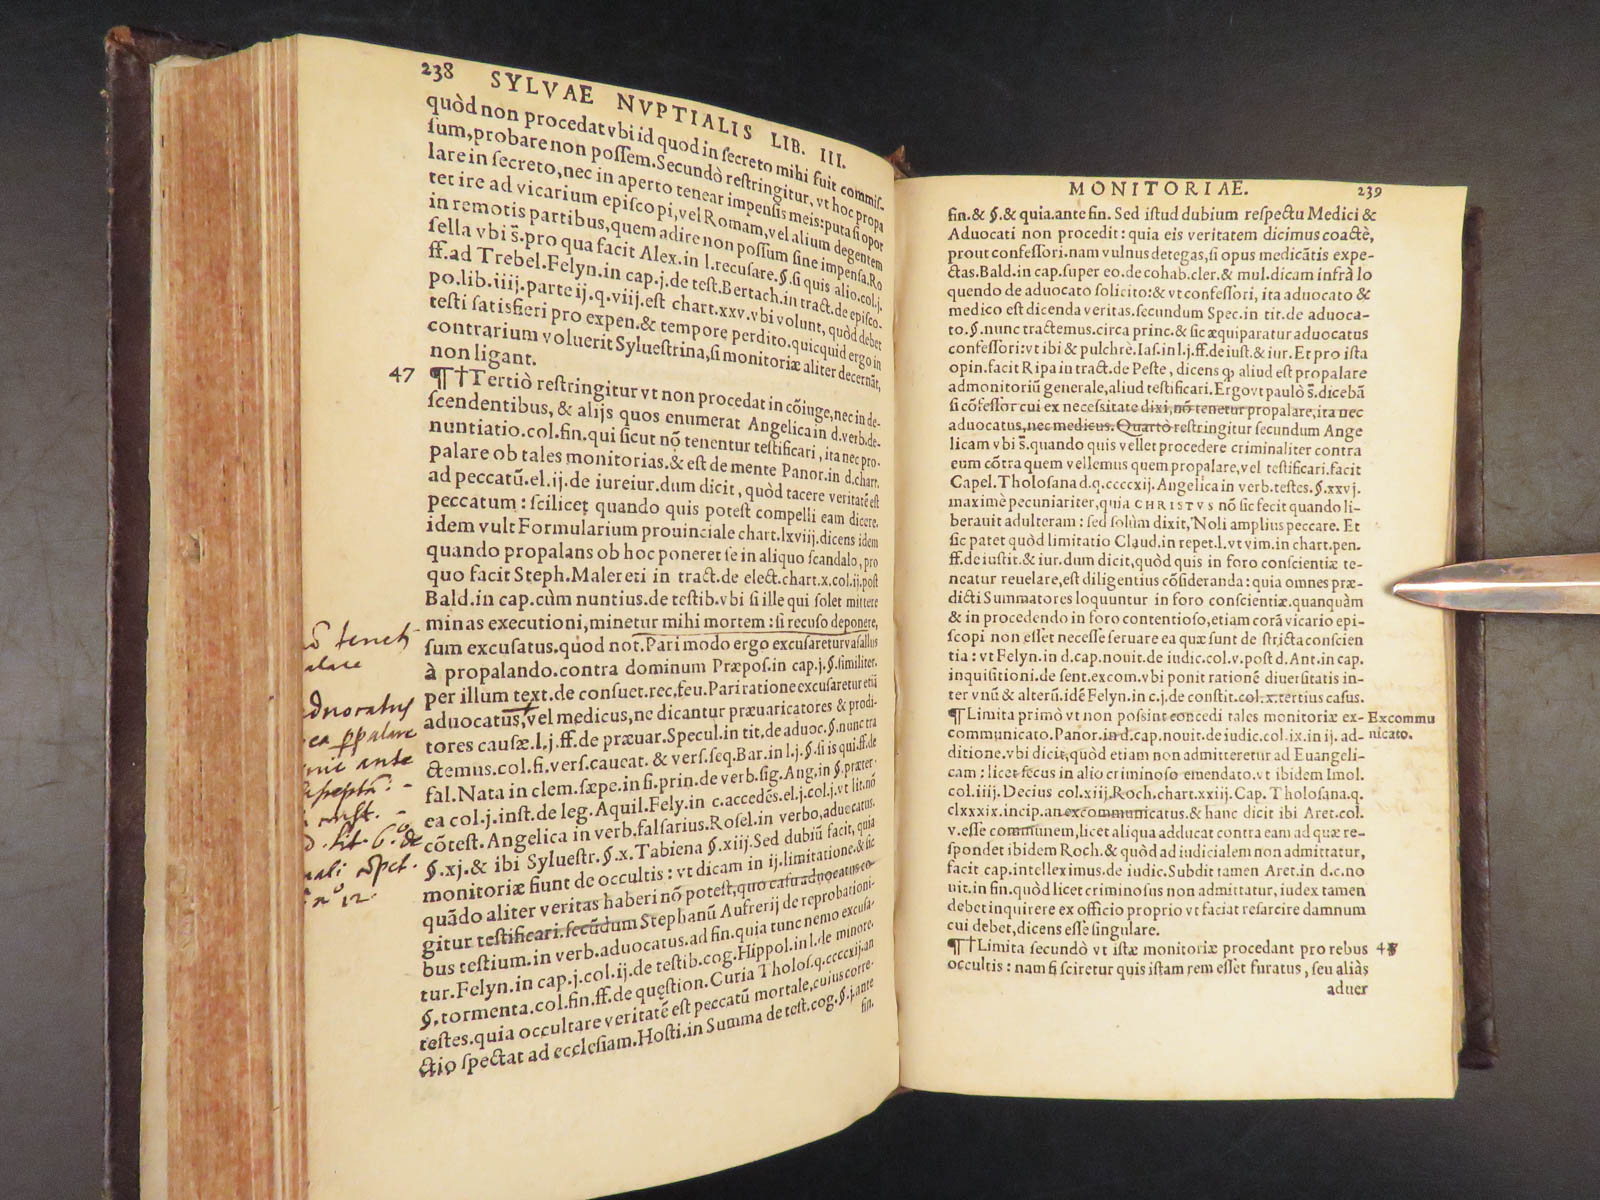 238 SYLVAE NVPTIALIS LIB. III.
quòd non procedat vbi id quod in ſecreto mihi fuit commiſ-
ſum, probare non poſſem. Secundò reſtringitur, vt hoc propa
lare in ſecreto, nec in aperto tenear impenſis meis: puta ſi opor
tet ire ad vicarium epiſcopi, vel Romam, vel alium degentem
in remotis partibus, quem adire non poſſum ſine impenſa. Ro
ſella vbi s̄. pro qua facit Alex. in l. recuſare. §. ſi quis alio. col. j.
ff. ad Trebel. Felyn. in cap. j. de teſt. Bertach. in tract. de epiſco-
po. lib. iiij. parte ij. q. viij. eſt chart. xxv. vbi volunt, quòd debet
teſti ſatisfieri pro expen. & tempore perdito. quicquid ergo in
contrarium voluerit Sylueſtrina, ſi monitoriæ aliter decernāt,
non ligant.
47 ¶†Tertiò reſtringitur vt non procedat in cōiuge, nec in de-
ſcendentibus, & alijs quos enumerat Angelica in d. verb. de-
nuntiatio. col. fin. qui ſicut nō tenentur teſtificari, ita nec pro-
palare ob tales monitorias. & eſt de mente Panor. in d. chart.
ad peccatū. el. ij. de iureiur. dum dicit, quòd tacere veritatē eſt
peccatum: ſcilicet quando quis poteſt compelli eam dicere.
idem vult Formularium prouinciale chart. lxviij. dicens idem
quando propalans ob hoc poneret ſe in aliquo ſcandalo, pro
quo facit Steph. Malereti in tract. de elect. chart. x. col. ij. poſt
Bald. in cap. cùm nuntius. de teſtib. vbi ſi ille qui ſolet mittere
minas executioni, minetur mihi mortem: ſi recuſo deponere,
ſum excuſatus. quod not. Pari modo ergo excuſaretur vaſallus
à propalando. contra dominum Præpoſ. in cap. j. §. ſimiliter.
per illum text. de conſuet. rec. feu. Pari ratione excuſaretur etiā
aduocatus, vel medicus, ne dicantur præuaricatores & prodi-
tores cauſæ. l. j. ff. de præuar. Specul. in tit. de aduoc. §. nunc tra
ctemus. col. fi. verſ. caueat. & verſ. ſeq. Bar. in l. j. §. ſi is qui. ff. de
fal. Nata in clem. ſæpe. in fi. prin. de verb. ſig. Ang. in §. præter-
ea col. j. inſt. de leg. Aquil. Fely. in c. accedēs. el. j. col. j. vt lit. nō
cōteſt. Angelica in verb. falſarius. Roſel. in verbo, aduocatus.
§. xj. & ibi Sylueſtr. §. x. Tabiena §. xiij. Sed dubiū facit, quia
monitoriæ fiunt de occultis: vt dicam in ij. limitatione. & ſic
quādo aliter veritas haberi nō poteſt, quo caſu aduocatus co-
gitur teſtificari. ſecūdum Stephanū Aufrerij de reprobationi-
bus teſtium. in verb. aduocatus. ad fin. quia tunc nemo excuſa-
tur. Felyn. in cap. j. col. ij. de teſtib. cog. Hippol. in l. de minore.
§. tormenta. col. fin. ff. de queſtion. Curia Tholoſ. q. ccccxij. an
teſtes. quia occultare veritatē eſt peccatū mortale, cuius corre-
ctio ſpectat ad eccleſiam. Hoſti. in Summa de teſt. cog. §. j. ante
fin.
MONITORIAE. 239
fin. & §. & quia. ante fin. Sed iſtud dubium reſpectu Medici &
Aduocati non procedit: quia eis veritatem dicimus coactè,
prout confeſſori. nam vulnus detegas, ſi opus medicātis expe-
ctas. Bald. in cap. ſuper eo. de cohab. cler. & mul. dicam infrà lo
quendo de aduocato ſolicito: & vt confeſſori, ita aduocato &
medico eſt dicenda veritas. ſecundum Spec. in tit. de aduoca-
to. §. nunc tractemus. circa princ. & ſic æquiparatur aduocatus
confeſſori: vt ibi & pulchrè. Iaſ. in l. j. ff. de iuſt. & iur. Et pro iſta
opin. facit Ripa in tract. de Peſte, dicens ꝙ aliud eſt propalare
admonitoriū generale, aliud teſtificari. Ergo vt paulò s̄. dicebā
ſi cōfeſſor cui ex neceſsitate dixi, nō tenetur propalare, ita nec
aduocatus, nec medicus. Quartò reſtringitur ſecundum Ange
licam vbi s̄. quando quis vellet procedere criminaliter contra
eum cōtra quem vellemus quem propalare, vel teſtificari. facit
Capel. Tholoſana d. q. ccccxij. Angelica in verb. teſtes. §. xxvj.
maximè pecuniariter, quia CHRISTVS nō ſic fecit quando li-
berauit adulteram: ſed ſolùm dixit, Noli amplius peccare. Et
ſic patet quòd limitatio Claud. in repet. l. vt vim. in chart. pen.
ff. de iuſtit. & iur. dum dicit, quòd quis in foro conſcientiæ te-
neatur reuelare, eſt diligentius cōſideranda: quia omnes præ-
dicti Summatores loquuntur in foro conſcientiæ. quanquàm
& in procedendo in foro contentioſo, etiam corā vicario epi-
ſcopi non eſſet neceſſe ſeruare ea quæ ſunt de ſtricta conſcien
tia: vt Felyn. in d. cap. nouit. de iudic. col. v. poſt d. Ant. in cap.
inquiſitioni. de ſent. excom. vbi ponit rationē diuerſitatis in-
ter vnū & alterū. idē Felyn. in c. j. de conſtit. col. x. tertius caſus.
¶Limita primò vt non poſsint concedi tales monitoriæ ex- Excommu
communicato. Panor. in d. cap. nouit. de iudic. col. ix. in ij. ad- nicato.
ditione. vbi dicit, quòd etiam non admitteretur ad Euangeli-
cam: licet ſecus in alio criminoſo emendato. vt ibidem Imol.
col. iiij. Decius col. xiij. Roch. chart. xxiij. Cap. Tholoſana. q.
clxxxix. incip. an excommunicatus. & hanc dicit ibi Aret. col.
v. eſſe communem, licet aliqua adducat contra eam ad quæ re-
ſpondet ibidem Roch. & quòd ad iudicialem non admittatur,
facit cap. intelleximus. de iudic. Subdit tamen Aret. in d. c. no
uit. in fin. quòd licet criminoſus non admittatur, iudex tamen
debet inquirere ex officio proprio vt faciat reſarcire damnum
cui debet, dicens eſſe ſingulare.
¶†Limita ſecundò vt iſtæ monitoriæ procedant pro rebus
occultis: nam ſi ſciretur quis iſtam rem eſſet furatus, ſeu aliàs
aduer